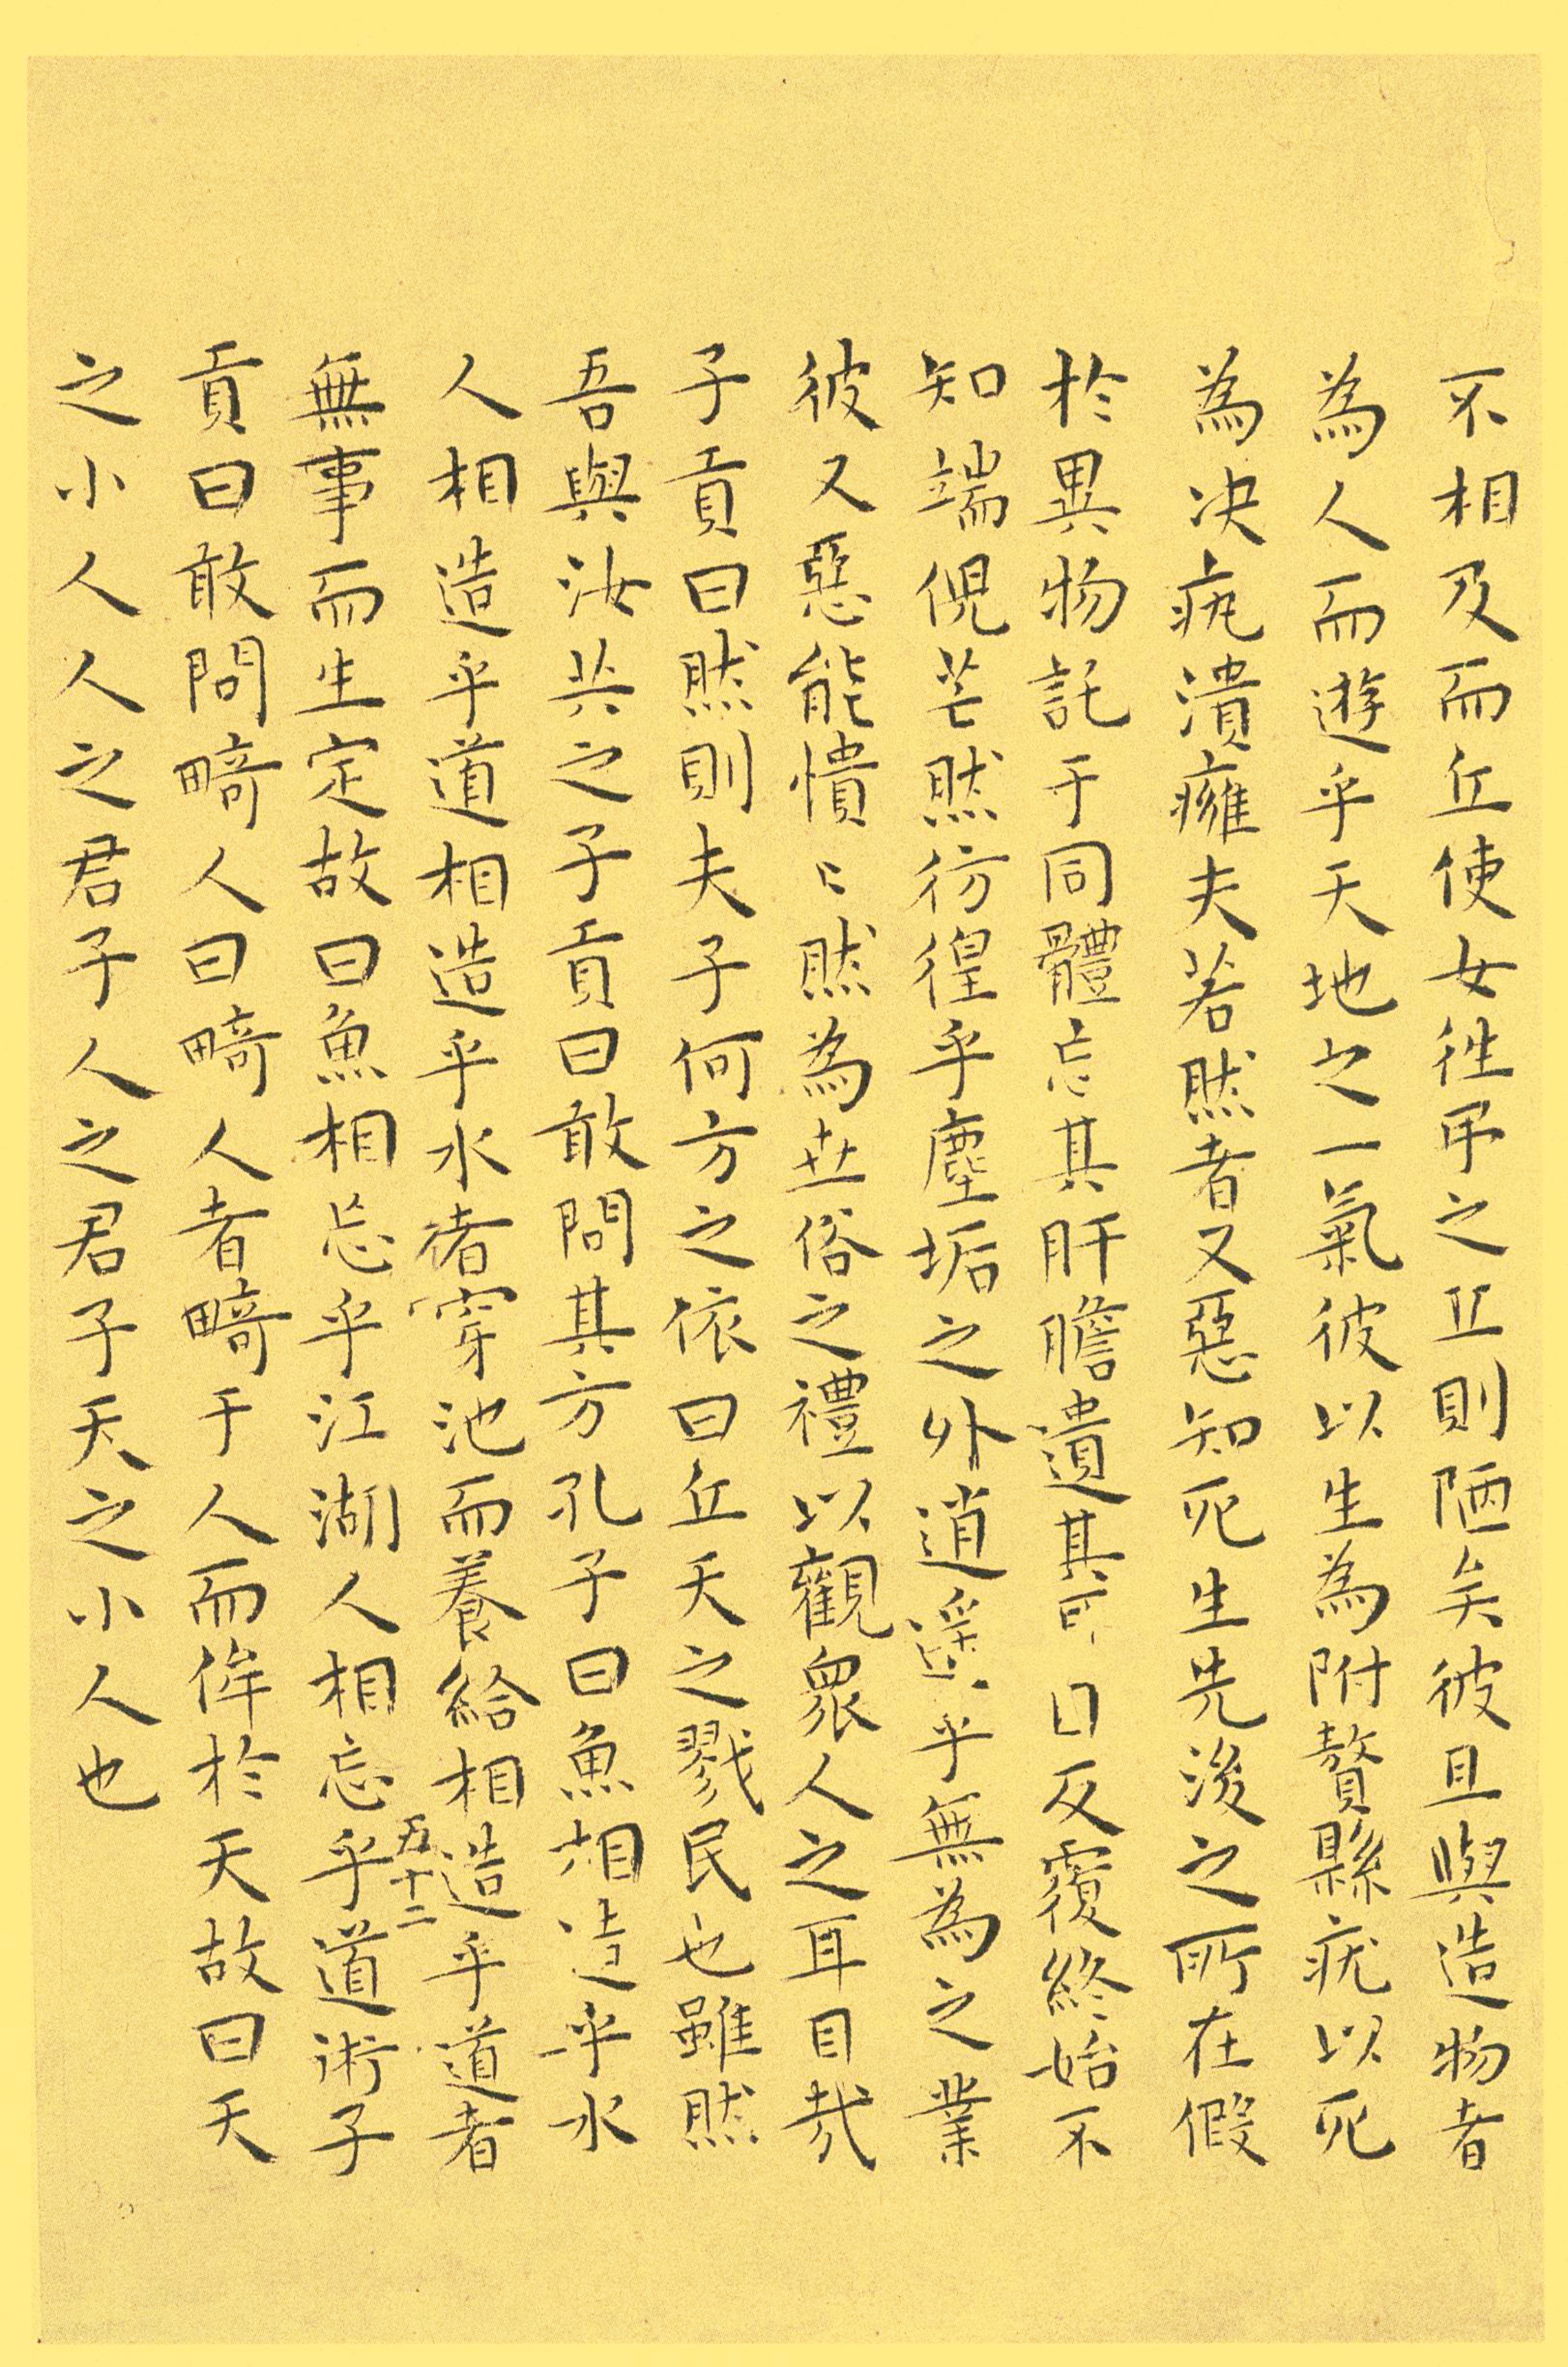 不相及而丘使女往弔之丘則陋矣彼且與造物者
為人而遊乎天地之一氣彼以生為附贅縣疣以死
為决𤴯潰癰夫若然者又惡知死生先後之所在假
於異物託于同體忘其肝膽遺其耳目反覆終始不
知端倪芒然彷徨乎塵垢之外逍遥乎無為之業
彼又惡能憒〻然為世俗之禮以觀眾人之耳目哉
子貢曰然則夫子何方之依曰丘天之戮民也雖然
吾與汝共之子貢曰敢問其方孔子曰魚相造乎水
人相造乎道相造乎水者穿池而養給相造乎道者
五十二
無事而生定故曰魚相忘乎江湖人相忘乎道術子
貢曰敢問畸人曰畸人者畸于人而侔於天故曰天
之小人人之君子人之君子天之小人也